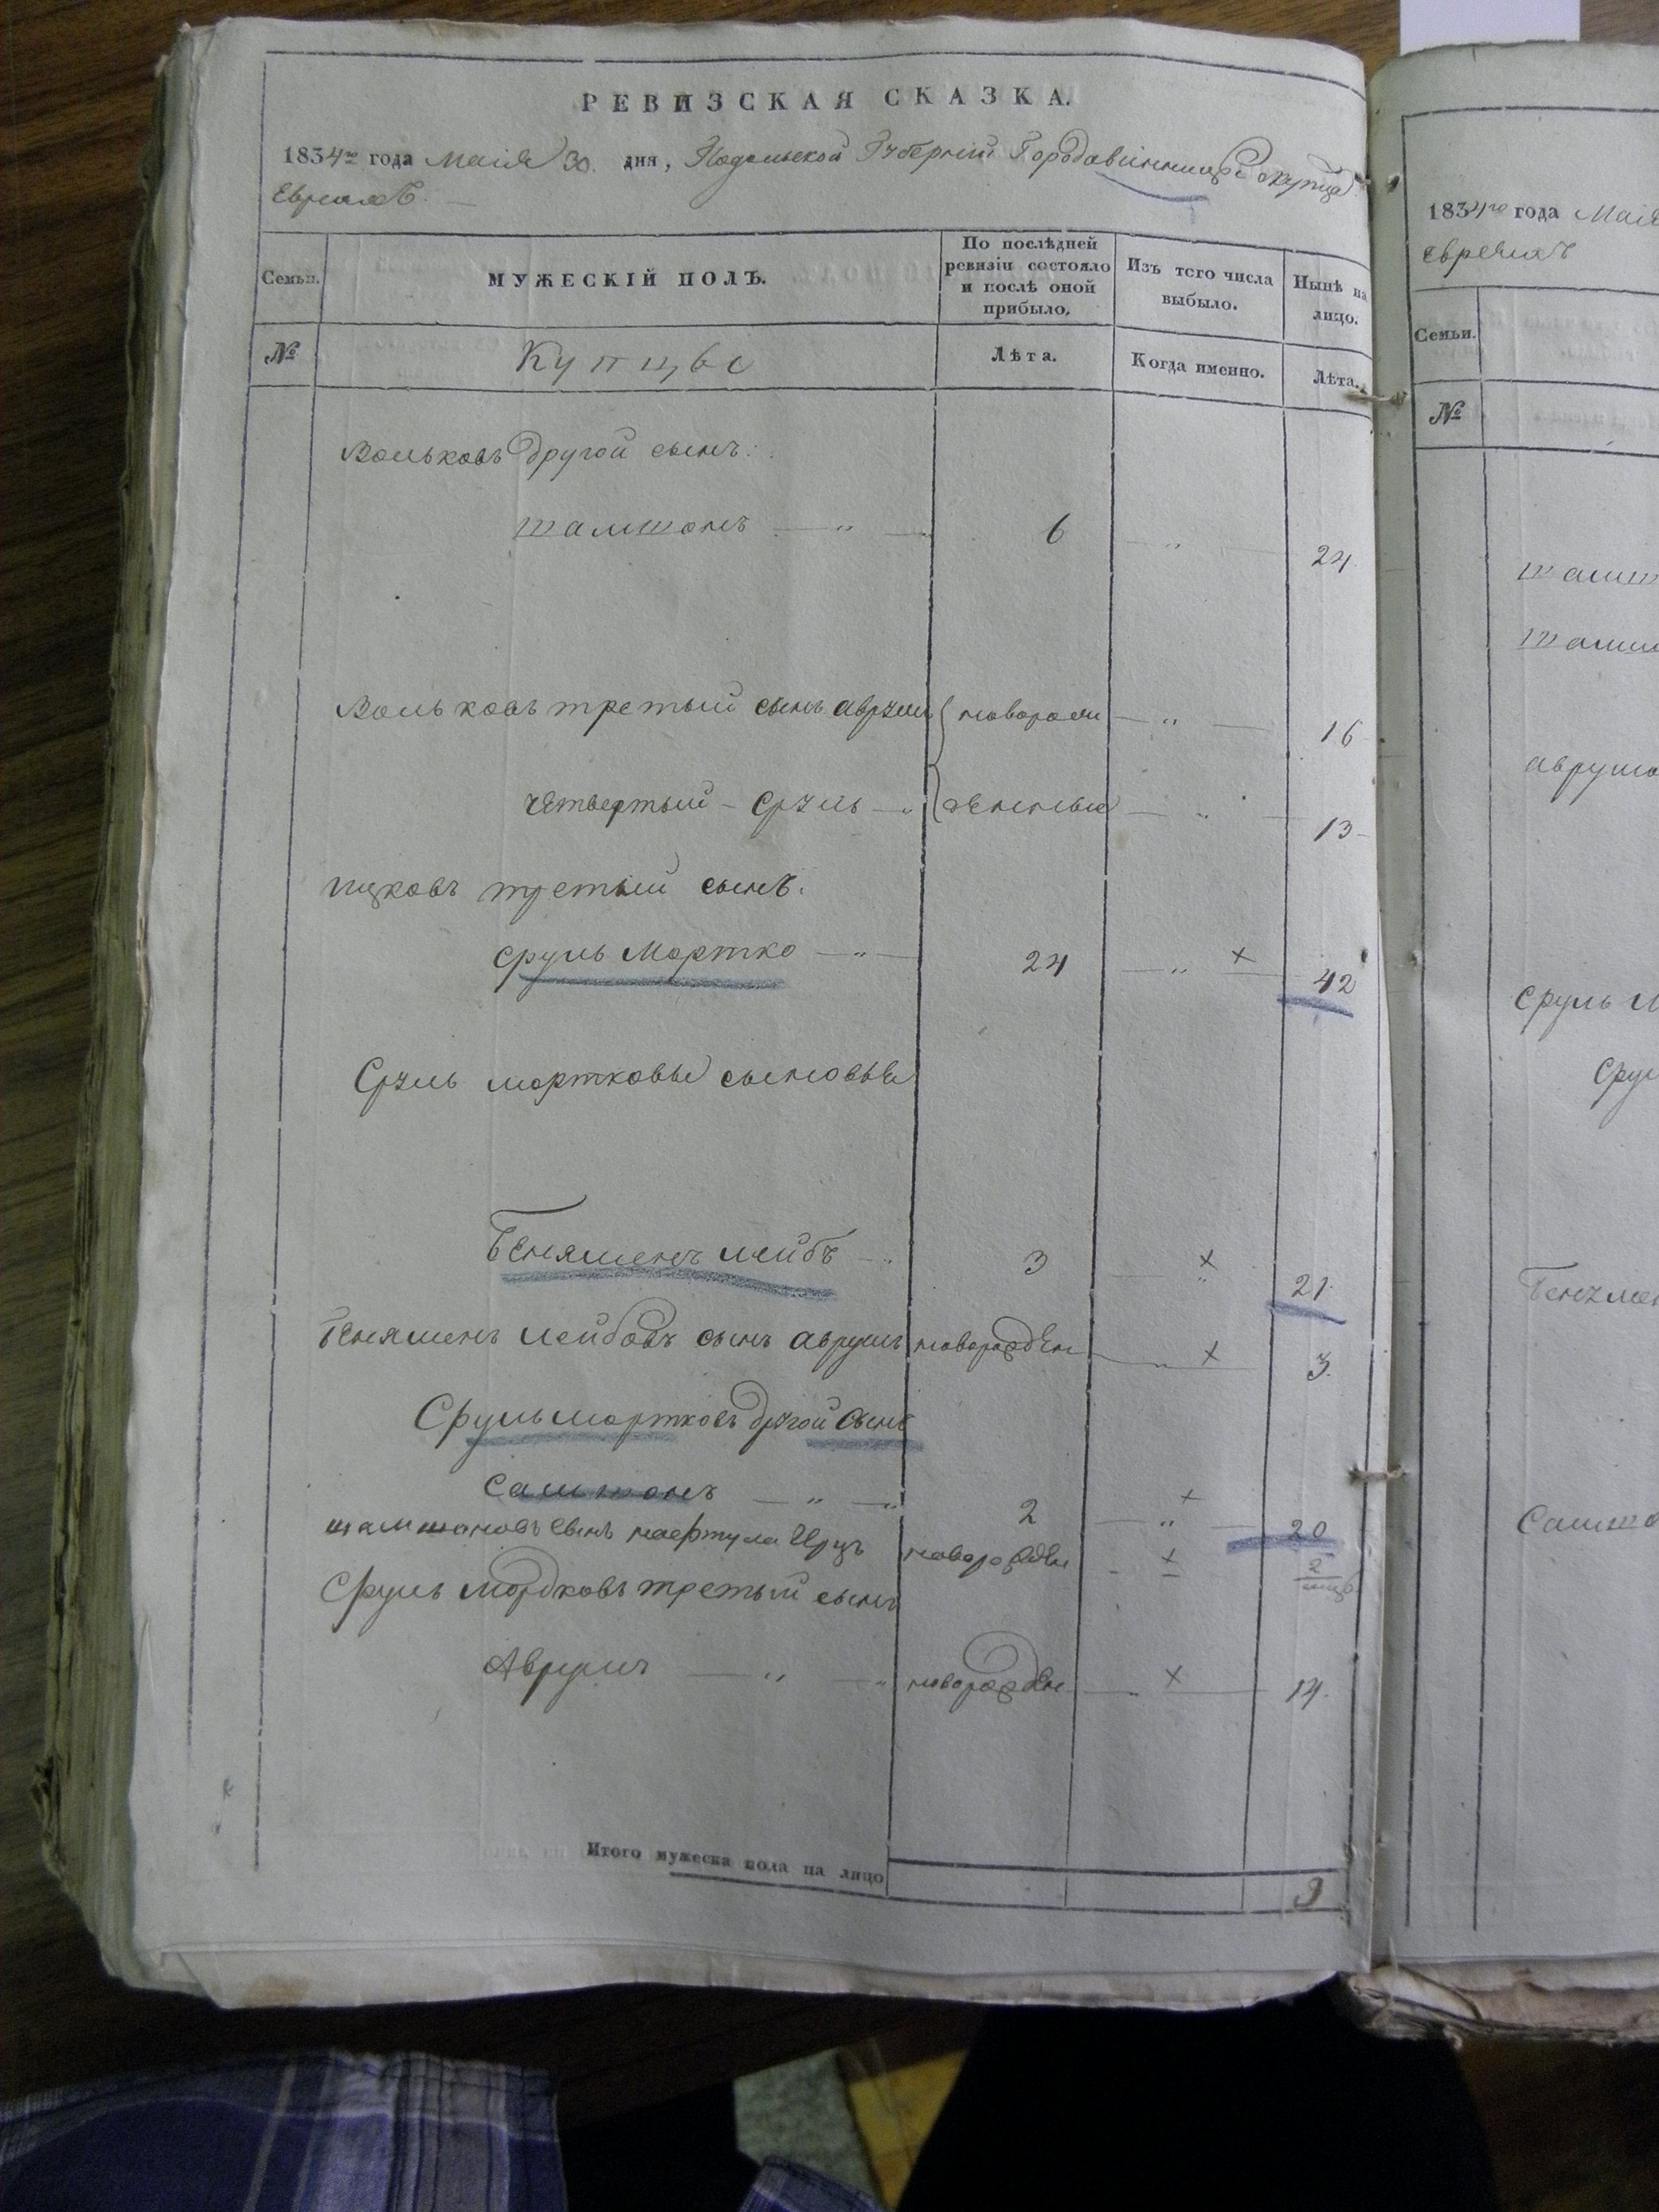 РЕВИЗСКАЯ СКАЗКА.
1834го года Маія 30. дня, Подольской Губерніи Города Винницы о купцахъ
Евреяхъ.
Семьи.
МУЖЕСКІЙ ПОЛЪ.
По послѣдней
ревизіи состояло
и послѣ оной
прибыло.
Изъ того числа
выбыло.
Нынѣ на
лицо.
№
Купцы
Лѣта.
Когда именно.
Лѣта.
Вольковъ другой сынъ:
Шамшонъ — „ — 6 — „ — 24
Вольковъ третьий сынъ Аврумъ новорож — „ — 16
четвертый — Сруль — „ денные — „ — 13
Ицковъ третьий сынъ:
Сруль Мортко — „ — 24 — „ — × 42
Сруль Мортковы сыновья
Беняменъ Лейбъ — „ 3 — „ × 21
Беняменъ Лейбовъ сынъ Аврумъ новорожден — „ × 3.
Сруль Мортковъ другой сынъ
Самшонъ — „ — „ 2 — „ × 20
Шамшоновъ сынъ Нафтула Герцъ новорожден - × 2
Сруль Мордковъ третьий сынъ
Аврумъ — „ — „ новорожден — „ × 14.
Итого мужеска пола на лицо 9
1834го года Маія
Евреяхъ
Семьи.
№
Шамш
Шамш
Аврумо
Сруль М
Срул
Беняме
Самшо